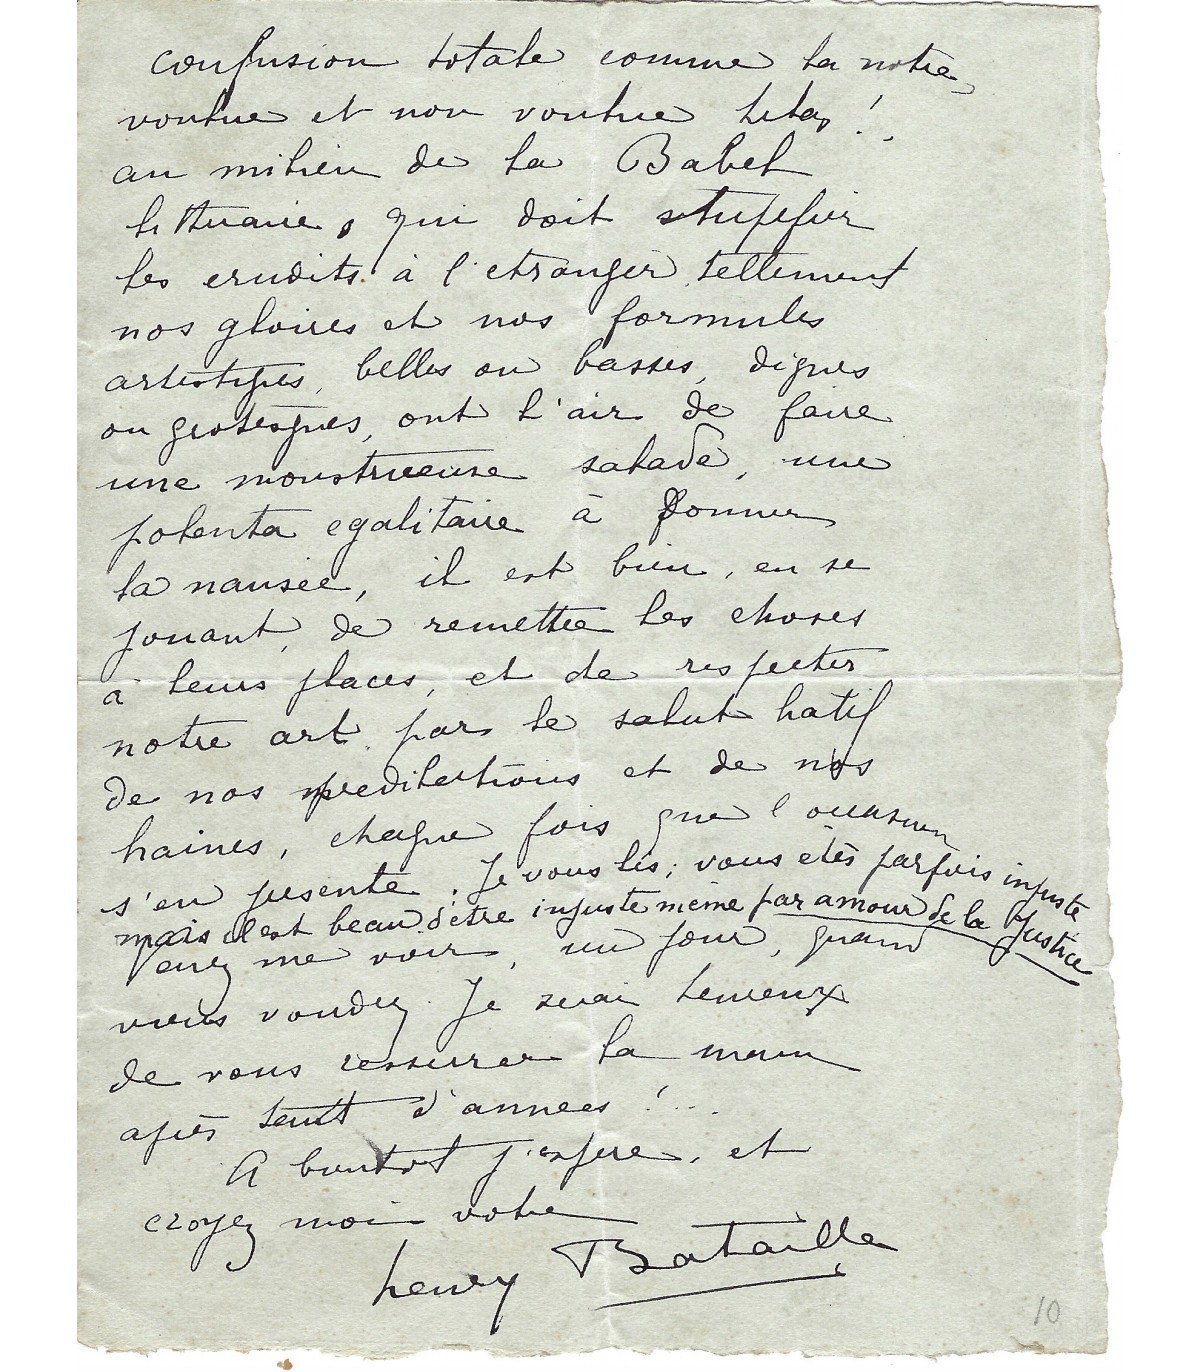 confusion totale comme la notre,
voulue et non voulue hélas !.
au milieu de la Babel
littéraire, qui doit stupéfier
les erudits à l'etranger, tellement
nos gloires et nos formules
artistiques, belles ou basses, dignes
ou grotesques, ont l'air de faire
une monstrueuse salade, une
polenta egalitaire à donner
la nausée, il est bien, en se
jouant, de remettre les choses
à leurs places, et de respecter
notre art par le salut hatif
de nos predilections et de nos
haines, chaque fois que l'occasion
s'en presente. Je vous lis; vous êtes parfois injuste
mais il est beau d'être injuste même par amour de la Justice
Venez me voir, un jour, quand
vous voudrez. Je serai heureux
de vous resserrer la main
après tant d'annees !...
A bientot j'espere, et
croyez moi votre
Henry Bataille
10